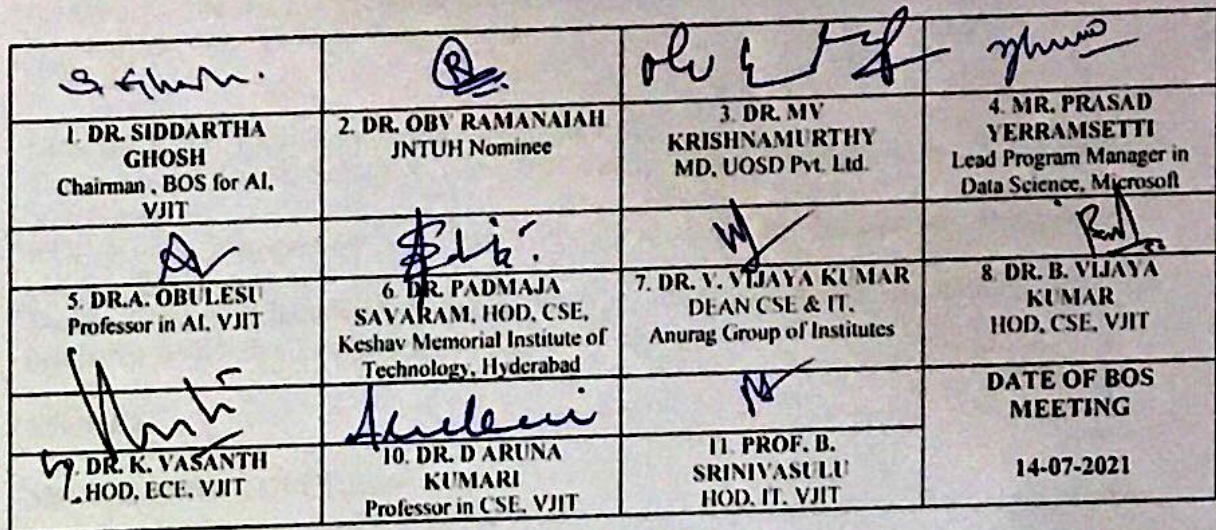 1. DR. SIDDARTHA
GHOSH
Chairman , BOS for AI,
VJIT
2. DR. OBV RAMANAIAH
JNTUH Nominee
3. DR. MV
KRISHNAMURTHY
MD, UOSD Pvt. Ltd.
4. MR. PRASAD
YERRAMSETTI
Lead Program Manager in
Data Science, Microsoft
5. DR.A. OBULESU
Professor in AI, VJIT
6. DR. PADMAJA
SAVARAM, HOD, CSE,
Keshav Memorial Institute of
Technology, Hyderabad
7. DR. V. VIJAYA KUMAR
DEAN CSE & IT,
Anurag Group of Institutes
8. DR. B. VIJAYA
KUMAR
HOD, CSE, VJIT
9. DR. K. VASANTH
HOD, ECE, VJIT
10. DR. D ARUNA
KUMARI
Professor in CSE, VJIT
11. PROF. B.
SRINIVASULU
HOD, IT, VJIT
DATE OF BOS
MEETING
14-07-2021